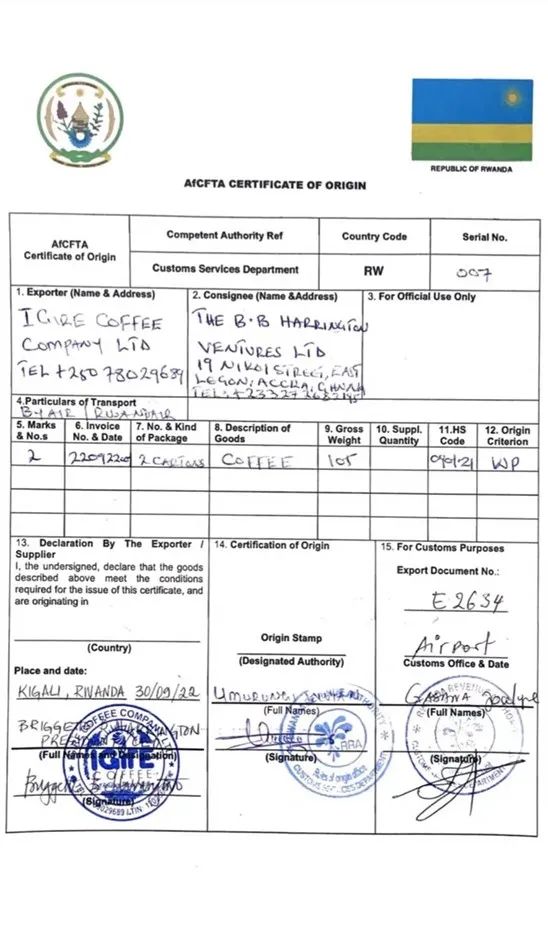 REPUBLIC OF RWANDA
AfCFTA CERTIFICATE OF ORIGIN
AfCFTA
Certificate of Origin
Competent Authority Ref
Country Code
Serial No.
Customs Services Department
RW
007
1. Exporter (Name & Address)
IGIRE COFFEE
COMPANY LTD
TEL +250 78029689
2. Consignee (Name &Address)
THE B.B HARRINGTON
VENTURES LTD
19 NIKOI STREET, EAST
LEGON, ACCRA, GHANA
TEL:
3. For Official Use Only
4.Particulars of Transport
BY AIR / RWANDAIR
5. Marks
& No.s
6. Invoice
No. & Date
7. No. & Kind
of Package
8. Description of
Goods
9. Gross
Weight
10. Suppl.
Quantity
11.HS
Code
12. Origin
Criterion
2
2 CARTONS
COFFEE
105
WP
13. Declaration By The Exporter /
Supplier
I, the undersigned, declare that the goods
described above meet the conditions
required for the issue of this certificate, and
are originating in
(Country)
Place and date:
KIGALI, RWANDA 30/09/22
(Full Names and Designation)
(Signature)
IGIRE
COFFEE
14. Certification of Origin
Origin Stamp
(Designated Authority)
(Full Names)
(Signature)
RRA
CUSTOMS SERVICES DEPARTMENT
15. For Customs Purposes
Export Document No.:
E 2634
Airport
Customs Office & Date
(Full Names)
(Signature)